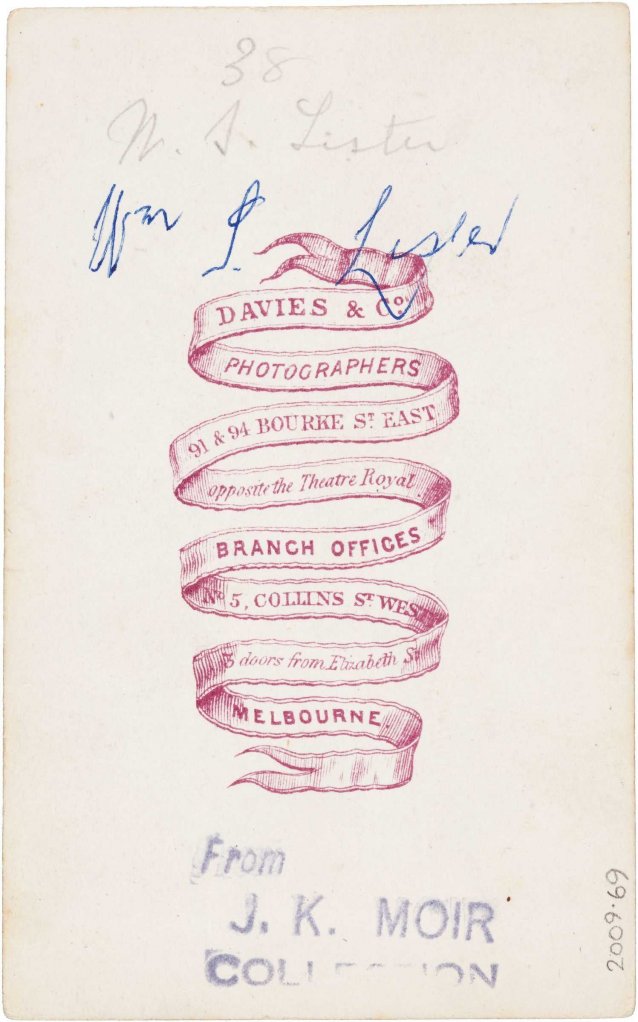 38
W. S. Lister
Wm S. Lister
DAVIES & Co.
PHOTOGRAPHERS
91 & 94 BOURKE ST. EAST
opposite the Theatre Royal
BRANCH OFFICES
No 5, COLLINS ST. WEST
3 doors from Elizabeth St
MELBOURNE.
From
J. K. MOIR
COLLECTION
2009.69